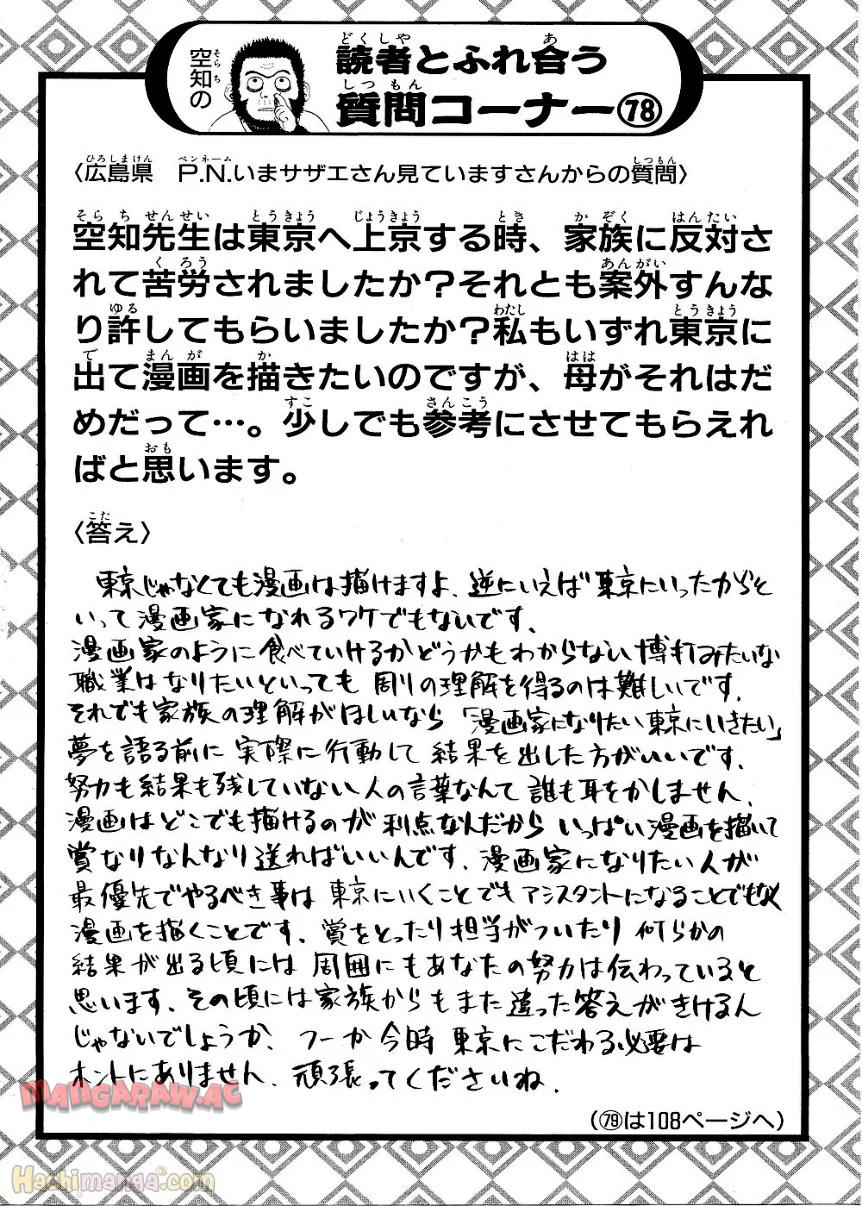 空知の
読者とふれ合う
質問コーナー㊆
〈広島県　P.N.いまサザエさん見ていますさんからの質問〉
空知先生は東京へ上京する時、家族に反対さ
れて苦労されましたか？それとも案外すんな
り許してもらいましたか？私もいずれ東京に
出て漫画を描きたいのですが、母がそれはだ
めだって…。少しでも参考にさせてもらえれ
ばと思います。
〈答え〉
東京じゃなくても漫画は描けますよ。逆にいえば東京にいったからと
いって漫画家になれるワケでもないです。
漫画家のように食べていけるかどうかもわからない博打みたいな
職業はなりたいといっても周りの理解を得るのは難しいです。
それでも家族の理解がほしいなら「漫画家になりたい東京にいきたい」
夢を語る前に実際に行動して結果を出した方がいいです。
努力も結果も残していない人の言葉なんて誰も耳をかしません。
漫画はどこでも描けるのが利点なんだからいっぱい漫画を描いて
賞なりなんなり送ればいいんです。漫画家になりたい人が
最優先でやるべき事は東京にいくことでもアシスタントになることでもなく
漫画を描くことです。賞をとったり担当がついたり何らかの
結果が出る頃には周囲にもあなたの努力は伝わっていると
思います。その頃には家族からもまた違った答えがきけるん
じゃないでしょうか。つーか今時東京にこだわる必要は
ホントにありません。頑張ってくださいね。
（79は108ページへ）
MANGARAW.AC
Hachimanga.com